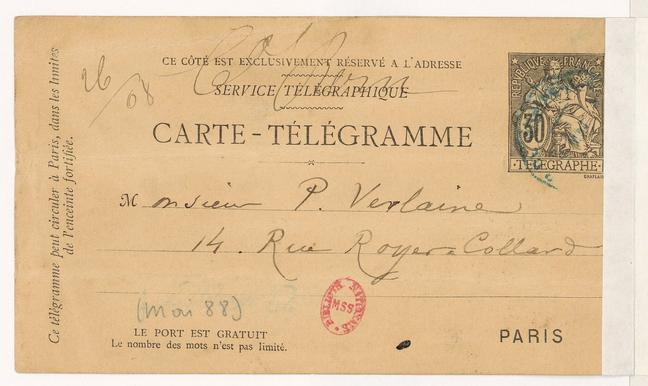 CE CÔTÉ EST EXCLUSIVEMENT RÉSERVÉ A L'ADRESSE
SERVICE TÉLÉGRAPHIQUE
CARTE-TÉLÉGRAMME
RÉPUBLIQUE FRANÇAISE
30
TÉLÉGRAPHE
CHAPLAIN
Ce télégramme peut circuler à Paris, dans les limites
de l'enceinte fortifiée.
Monsieur P. Verlaine
14. Rue Royer-Collard
(Mai 88)
BIBLIOTH NATIONALE
MSS
LE PORT EST GRATUIT
Le nombre des mots n'est pas limité.
PARIS